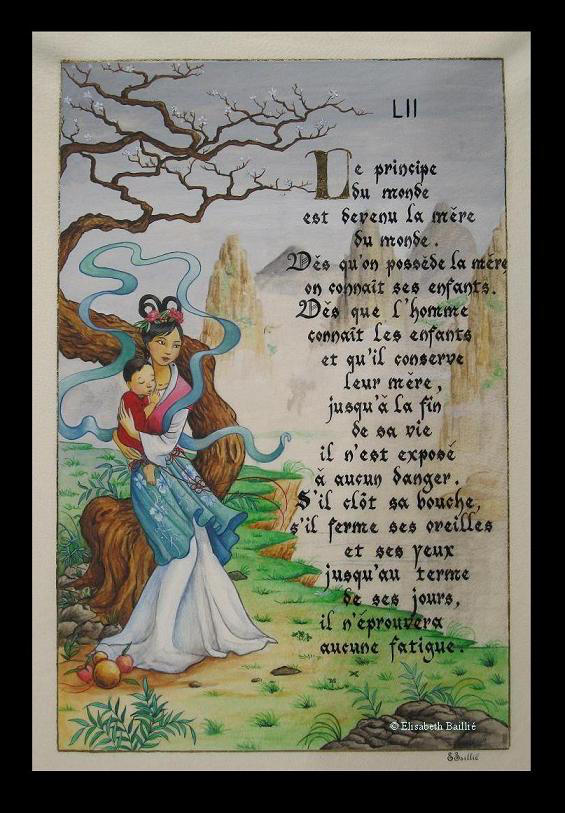 LII
Le principe
du monde
est devenu la mère
du monde.
Dès qu'on possède la mère
on connait ses enfants.
Dès que l'homme
connaît les enfants
et qu'il conserve
leur mère,
jusqu'à la fin
de sa vie
il n'est exposé
à aucun danger.
S'il clôt sa bouche,
s'il ferme ses oreilles
et ses yeux
jusqu'au terme
de ses jours,
il n'éprouvera
aucune fatigue.
© Elisabeth Baillié